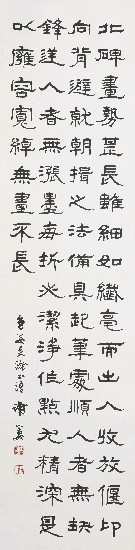 北碑畫勢甚長雖細如纖毫而出入收放偃仰
向背避就朝揖之法備具起筆處順入者無缺
鋒逆入者無漲墨每折必潔淨作點尤精深是
以雍容寬綽無畫不長